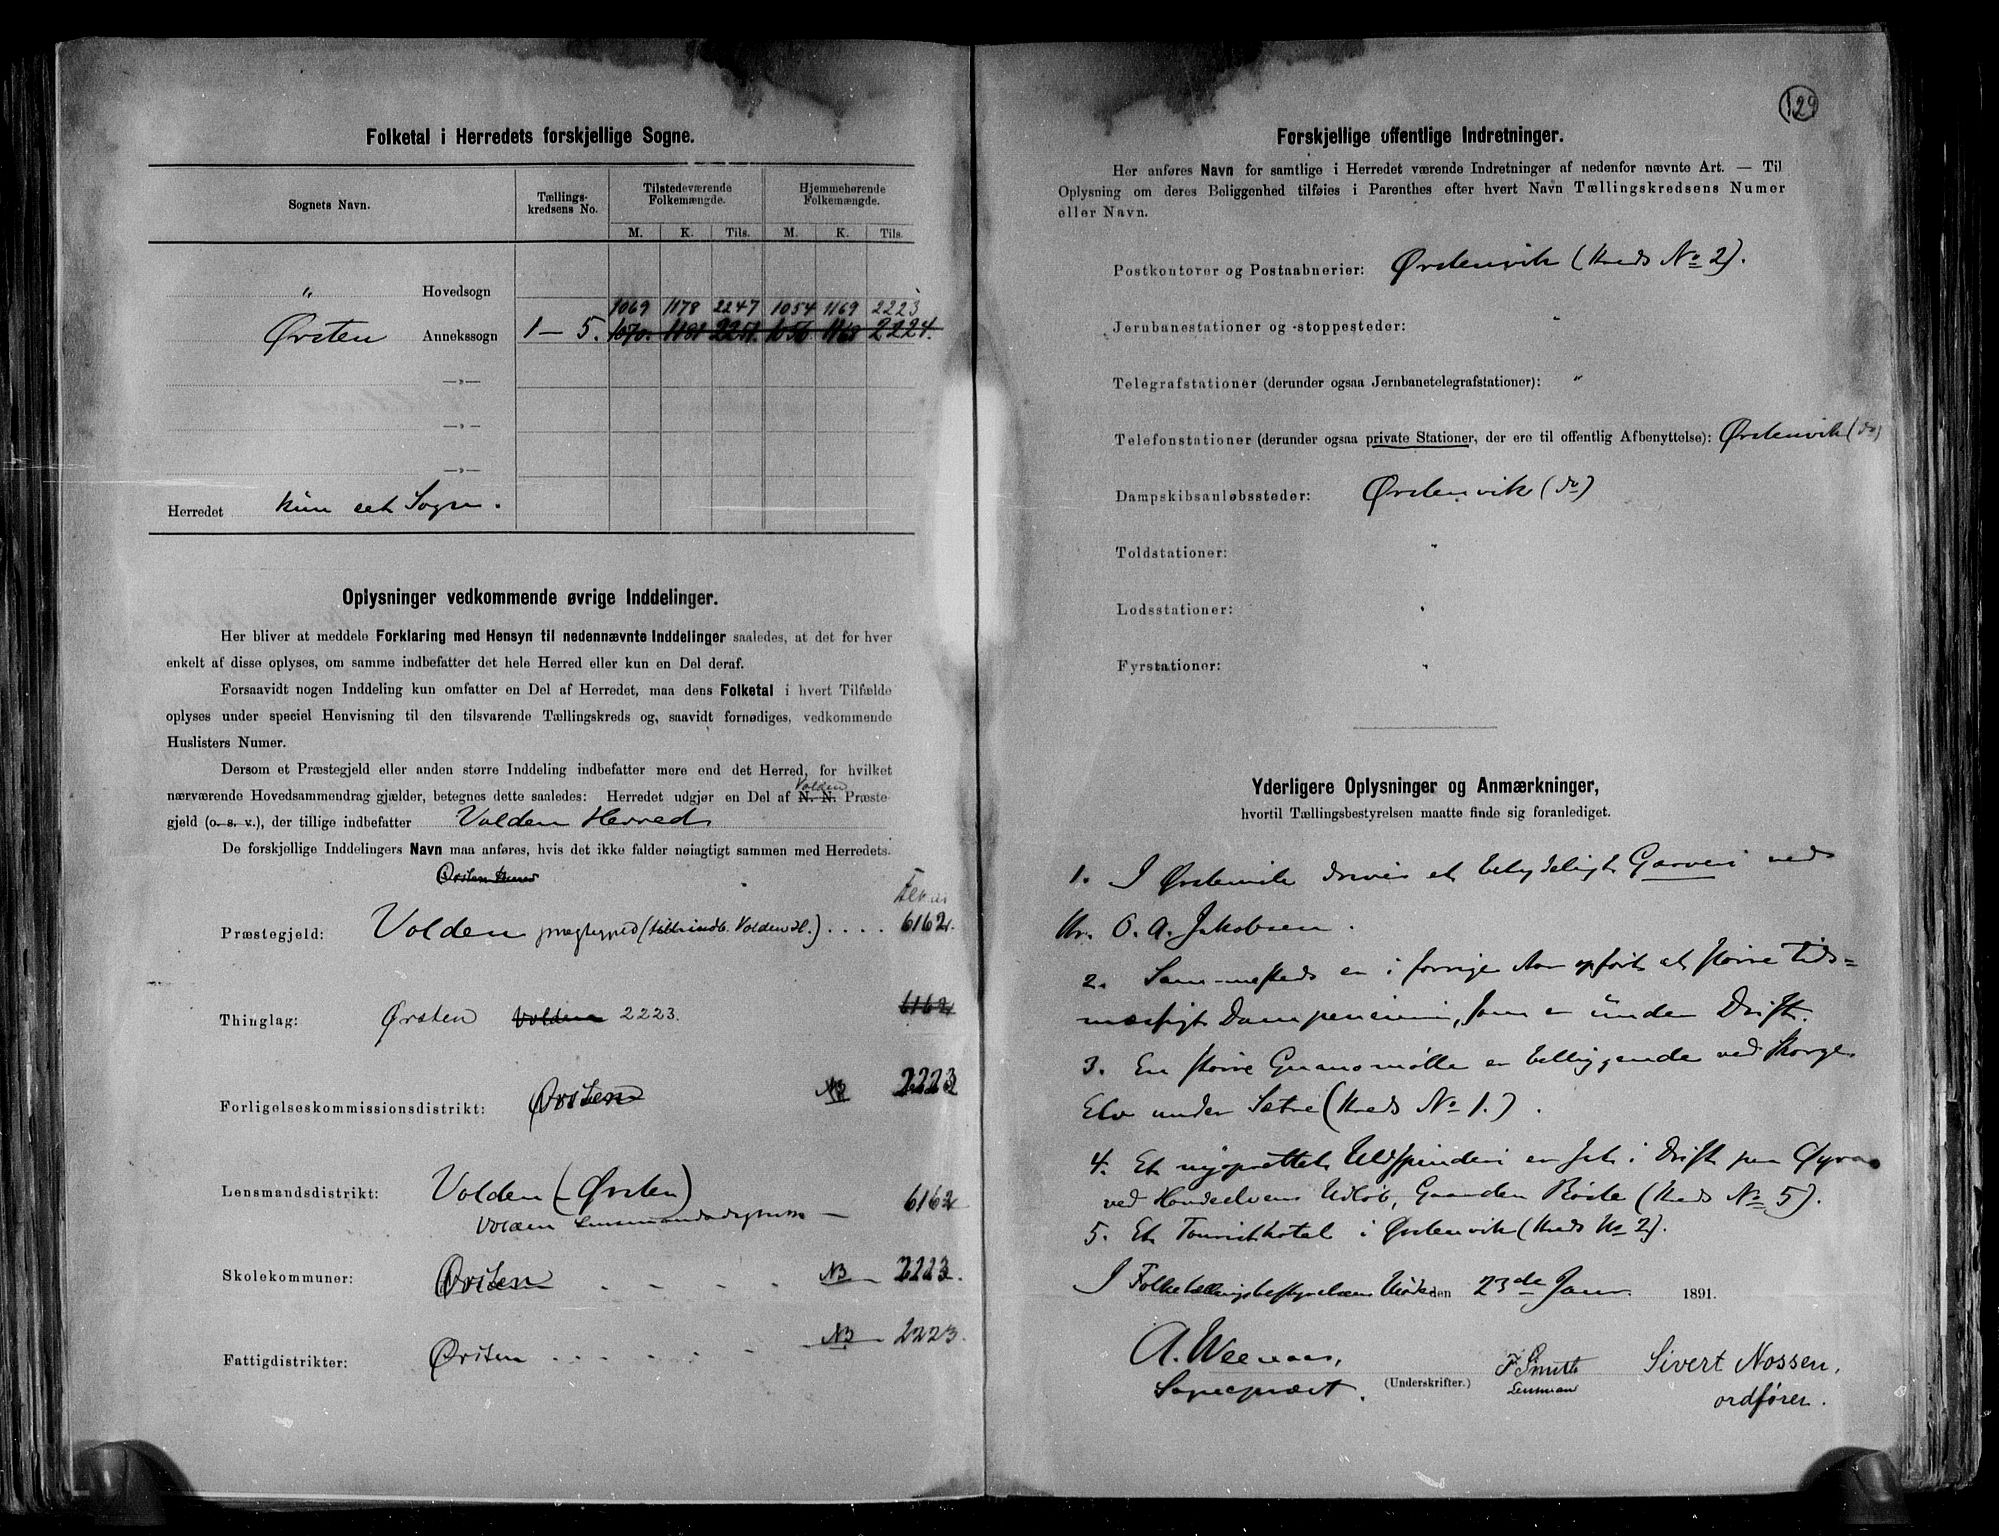 Folketal i Herredets forskjellige Sogne.
Sognets Navn.
Tællings-
kredsens No.
Tilstedeværende
Folkemængde.
Hjemmehørende
Folkemængde.
M. K. Tils. M. K. Tils.
" Hovedsogn
1069 1178 2247 1054 1169 2223
Ørsten Annekssogn 1 — 5. 1070. 1181 2251. 1056 1168 2224.
—„—
—„—
—„—
Herredet kun eet Sogn.
Oplysninger vedkommende øvrige Inddelinger.
Her bliver at meddele Forklaring med Hensyn til nedennævnte Inddelinger saaledes, at det for hver
enkelt af disse oplyses, om samme indbefatter det hele Herred eller kun en Del deraf.
Forsaavidt nogen Inddeling kun omfatter en Del af Herredet, maa dens Folketal i hvert Tilfælde
oplyses under speciel Henvisning til den tilsvarende Tællingskreds og, saavidt fornødiges, vedkommende
Huslisters Numer.
Dersom et Præstegjeld eller anden større Inddeling indbefatter mere end det Herred, for hvilket
Volden
nærværende Hovedsammendrag gjælder, betegnes dette saaledes: Herredet udgjør en Del af N. N. Præste-
gjeld (o. s. v.), der tillige indbefatter Volden Herred
De forskjellige Inddelingers Navn maa anføres, hvis det ikke falder nøiagtigt sammen med Herredets.
Ørsten
Præstegjeld: Volden (tillr indb. Volden Hd.) . . . . 6162.
Thinglag: Ørsten Volden 2223. 6162
Forligelseskommissionsdistrikt: Ørsten NB 2223
Lensmandsdistrikt: Volden (- Ørsten)
Volden — 6162
Skolekommuner: Ørsten - - - - NB — 2223.
Fattigdistrikter: Ørsten . . - - - - NB — 2223.
129
Forskjellige offentlige Indretninger.
Her anføres Navn for samtlige i Herredet værende Indretninger af nedenfor nævnte Art. — Til
Oplysning om deres Beliggenhed tilføies i Parenthes efter hvert Navn Tællingskredsens Numer
eller Navn.
Postkontorer og Postaabnerier: Ørstenvik (Kreds No 2).
Jernbanestationer og -stoppesteder: "
Telegrafstationer (derunder ogsaa Jernbanetelegrafstationer): "
Telefonstationer (derunder ogsaa private Stationer, der ere til offentlig Afbenyttelse): Ørstenvik (do)
Dampskibsanløbssteder: Ørstenvik (do)
Toldstationer: "
Lodsstationer: "
Fyrstationer: "
Yderligere Oplysninger og Anmærkninger,
hvortil Tællingsbestyrelsen maatte finde sig foranlediget.
1. I Ørstenvik drives et betydeligt Garveri ved
Hr. O. A. Jakobsen.
2. Sammesteds er i forrige Aar opført et større tids=
mæssigt Dampgarveri, som er under Drift.
3. En større Guanomølle er beliggende ved Skorge
Elv under Sætre (Kreds No 1.).
4. Et nyoprettet Uldspinderi er sat i Drift paa Øyra
ved Hovdeelvens Udløb, Gaarden Riste (Kreds No 5).
5. Et Touristhotel i Ørstenvik (Kreds No 2).
I Folketællingsbestyrelsen Volden den 23de Janr. 1891.
A. Weenaas, F. Smith Sivert Nossen,
Sognepræst. (Underskrifter.) Lensmand ordfører.